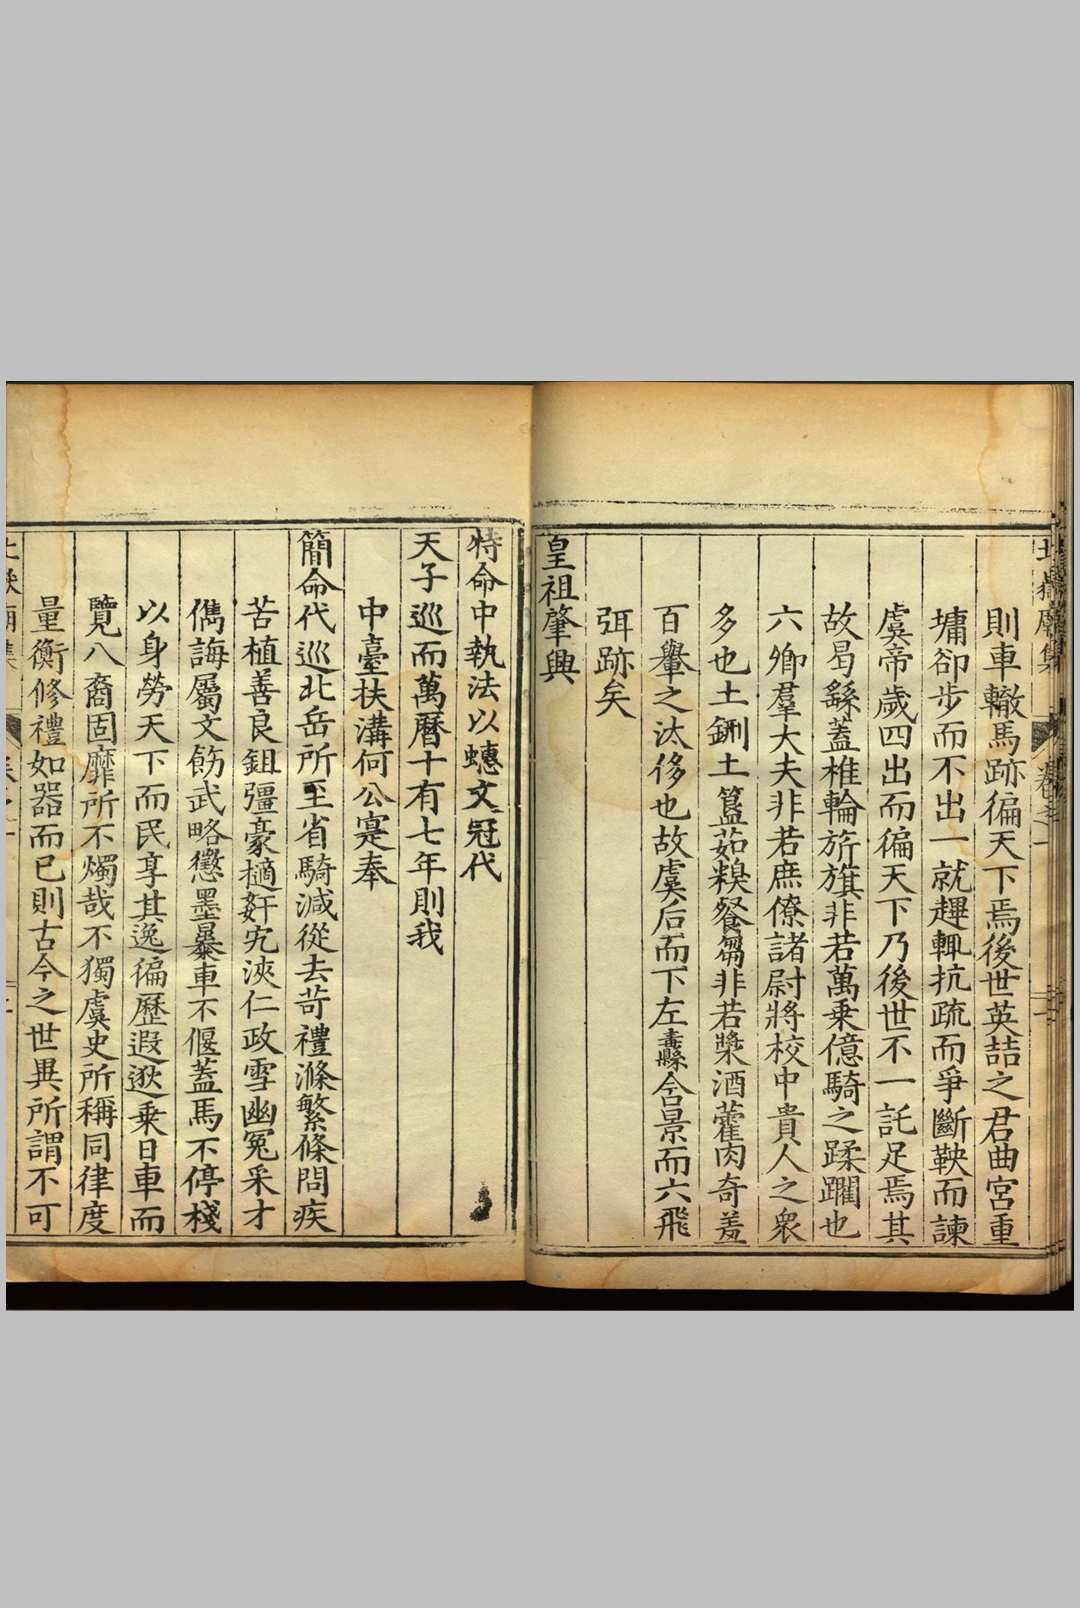 則車轍馬跡徧天下焉後世英喆之君曲宮重
墉卻步而不出一就趯輒抗疏而爭斷鞅而諫
虞帝歲四出而徧天下乃後世不一託足焉其
故曷繇蓋椎輪旂旗非若萬乘億騎之蹂躪也
六卿羣大夫非若庶僚諸尉將校中貴人之衆
多也土鉶土簋茹糗餐芻非若漿酒藿肉奇羞
百轝之汰侈也故虞后而下左纛縣含景而六飛
弭跡矣
皇祖肇興
特命中執法以蟪文冠代
天子巡而萬曆十有七年則我
中臺扶溝何公寔奉
簡命代巡北岳所至省騎減從去苛禮滌繁條問疾
苦植善良鉏彊豪擿奸宄浹仁政雪幽冤采才
儁誨屬文飭武略懲墨暴車不偃蓋馬不停棧
以身勞天下而民享其逸徧歷遐逖乘日車而
覽八裔固靡所不燭哉不獨虞史所稱同律度
量衡修禮如器而已則古今之世異所謂不可